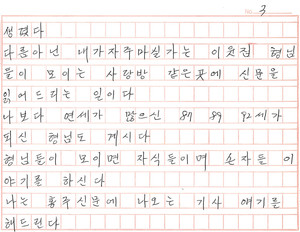 3
생겼다
다름아닌 내가자주마실가는 이웃집 형님
들이 모이는 사랑방 같은곳에 신문을
읽어드리는 일이다
나보다 연세가 많으신 87 89 92세가
되신 형님도 계시다
형님들이 모이면 자식들이며 손자들 이
야기를 하신다
나는 홍주신문에 나오는 기사 얘기를
해드린다